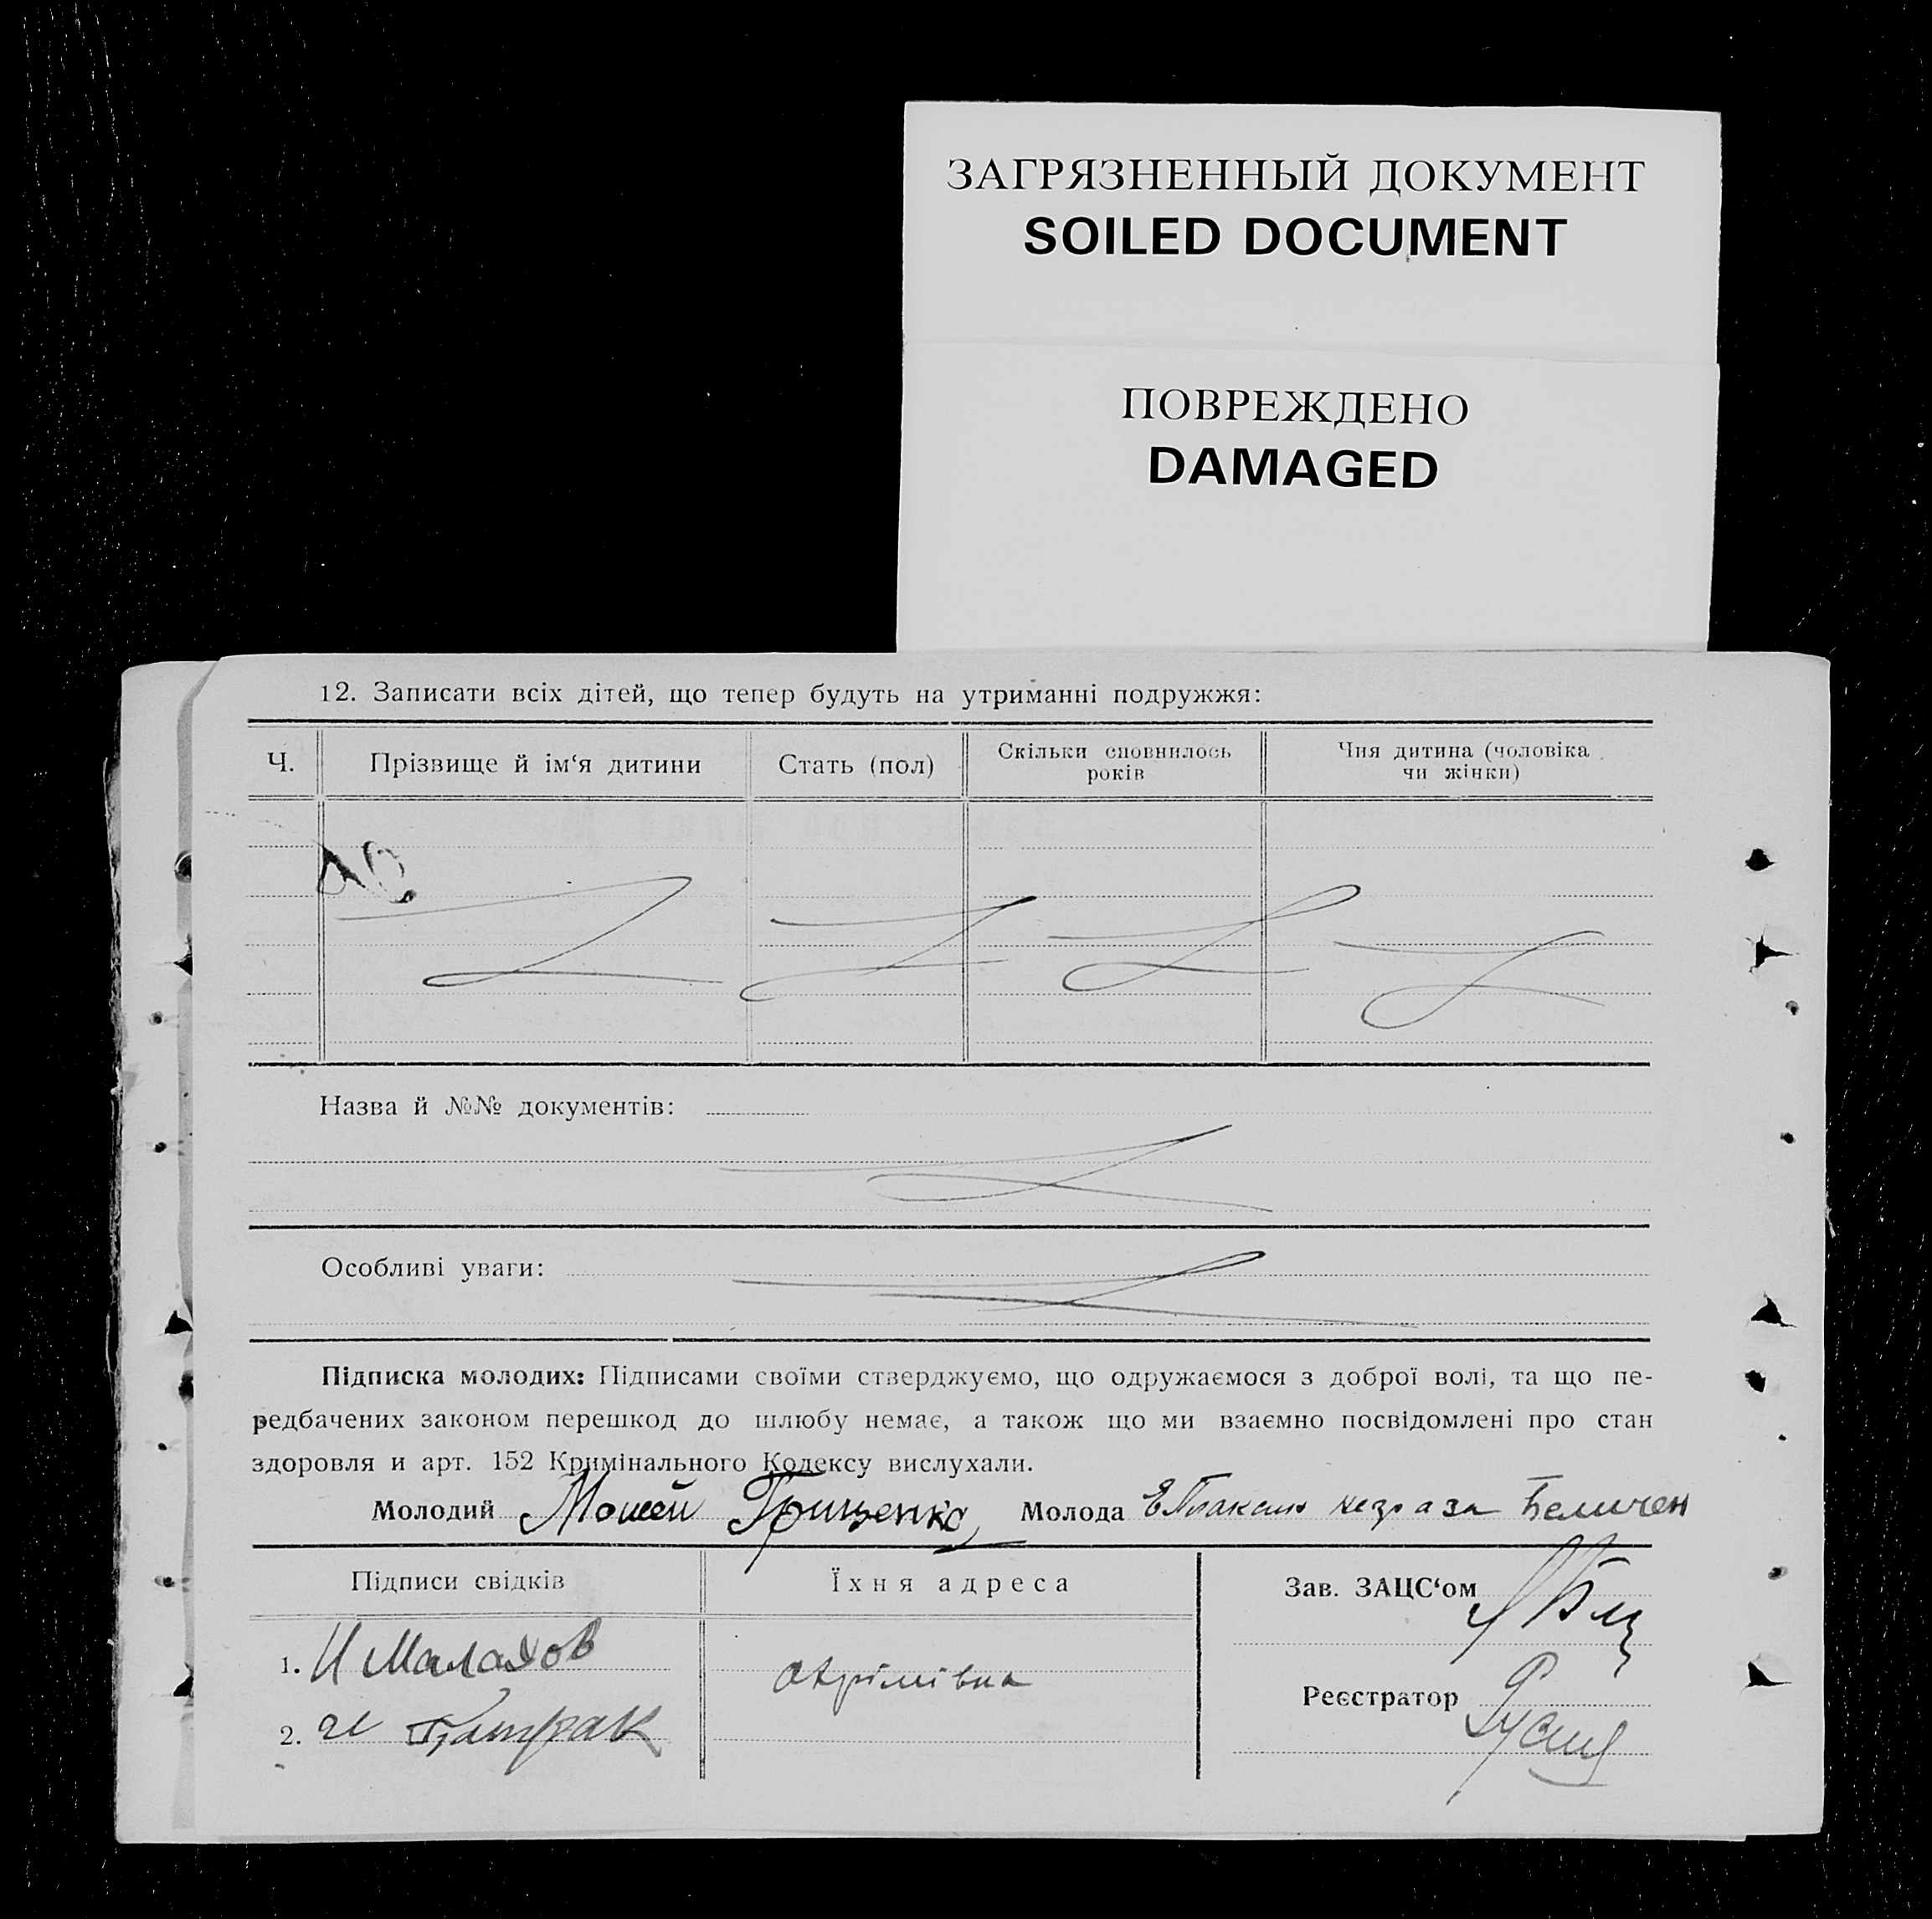 ЗАГРЯЗНЕННЫЙ ДОКУМЕНТ
SOILED DOCUMENT
ПОВРЕЖДЕНО
DAMAGED
12. Записати всіх дітей, що тепер будуть на утриманні подружжя:
Ч.
Прізвище й ім‘я дитини
Стать (пол)
Скільки сповнилось
років
Чия дитина (чоловіка
чи жінки)
Назва й №№ документів:
Особливі уваги:
Підписка молодих: Підписами своїми стверджуємо, що одружаємося з доброї волі, та що пе-
редбачених законом перешкод до шлюбу немає, а також що ми взаємно посвідомлені про стан
здоровля и арт. 152 Кримінального Кодексу вислухали.
Молодий Мошей Грищенко Молода
Підписи свідків
Їхня адреса
Зав. ЗАЦС‘ом
1. И Малахов
Охрімівка
Реєстратор
2.